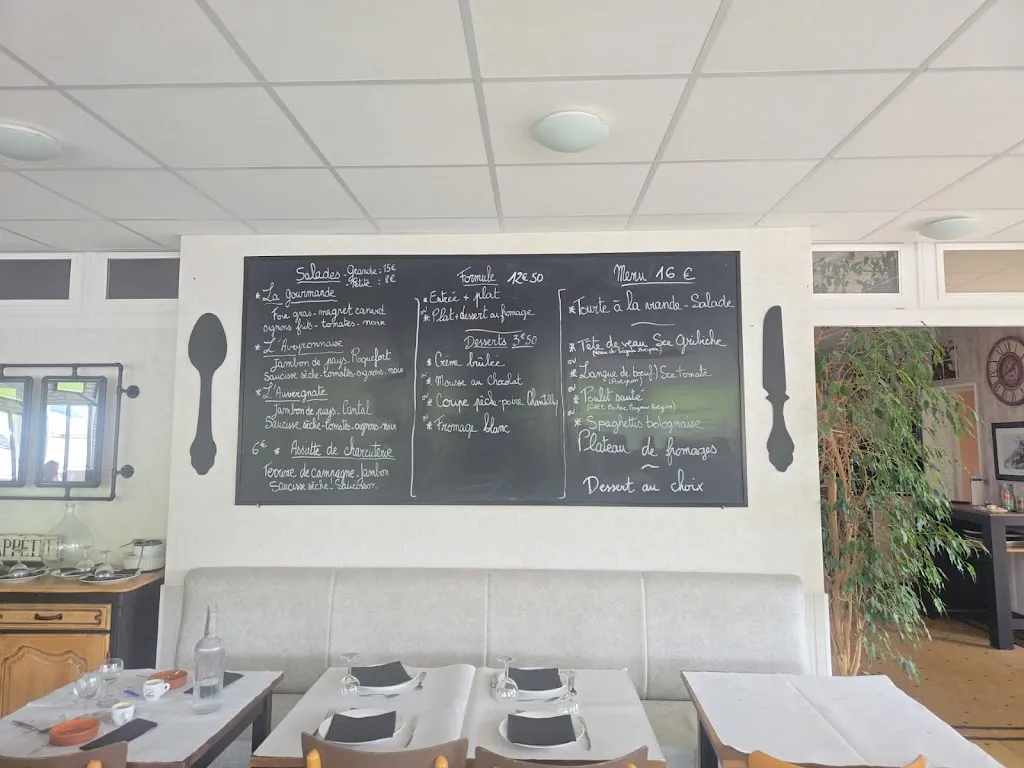 Salades - Grande : 15€
- Petite : 8€
* La gourmande
Foie gras - magret canard
oignons frits - tomates - noix
* L'Aveyronnaise
Jambon de pays - Roquefort
Saucisse sèche - tomates - oignons - noix
* L'Auvergnate
Jambon de pays - Cantal
Saucisse sèche - tomates - oignons - noix
6€ * Assiette de charcuterie
Terrine de campagne - Jambon
Saucisse sèche - Saucisson
Formule 12€50
* Entrée + plat
ou
* Plat + dessert ou fromage
Desserts 3€50
* Crème brûlée
ou
* Mousse au chocolat
ou
* Coupe pêche - poire Chantilly
ou
* Fromage blanc
Menu 16 €
* Tourte à la viande - Salade
* Tête de veau Sce Gribiche
ou
* Langue de bœuf Sce tomate
(Aveyron)
ou
* Poulet sauté
ou
* Spaghettis bolognaise
Plateau de fromages
Dessert au choix
APPÉTIT